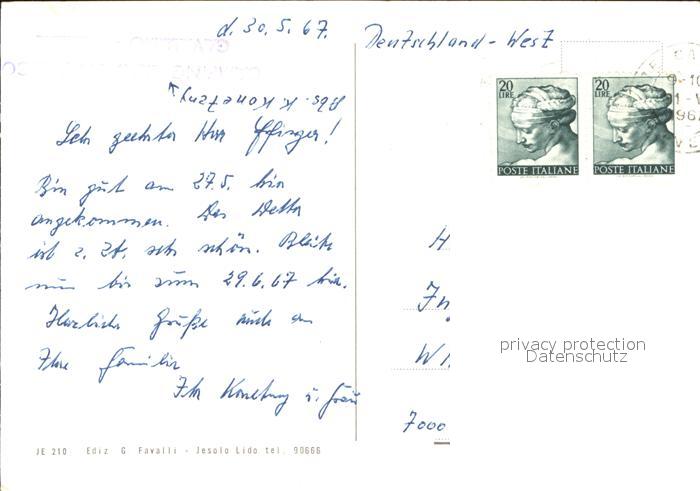 d. 30.5.67.
Deutschland - West
Abs. K. Konetzny
Sehr geehrter Herr Effinger!
Bin gut am 27.5. hier
angekommen. Das Wetter
ist z. Zt. sehr schön. Bleibe
nun bis zum 29.6.67 hier.
Herzliche Grüße auch an
Ihre Familie
Ihr Konetzny u. Frau
20
LIRE
POSTE ITALIANE
20
LIRE
POSTE ITALIANE
H
In
Wi
7000
privacy protection
Datenschutz
JE 210 Ediz G Favalli - Jesolo Lido tel. 90666